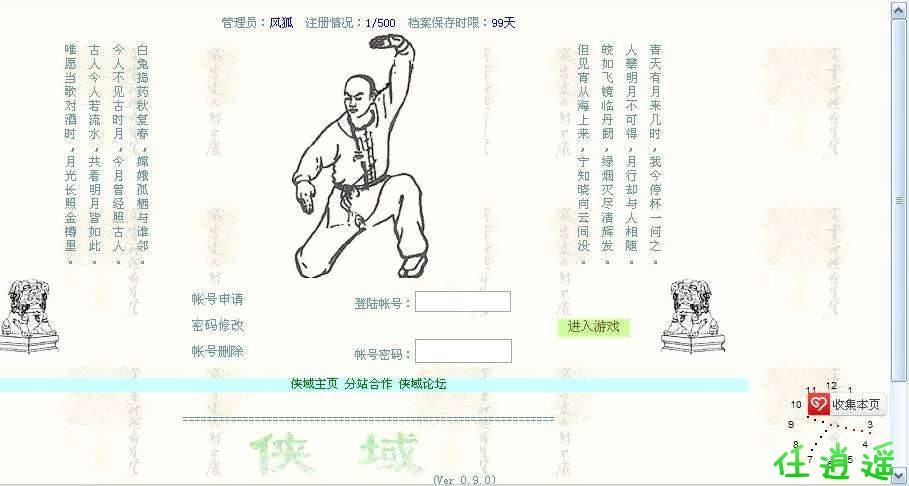 管理员：风狐 注册情况：1/500 档案保存时限：99天
青天有月来几时，我今停杯一问之。
人攀明月不可得，月行却与人相随。
皎如飞镜临丹阙，绿烟灭尽清辉发。
但见宵从海上来，宁知晓向云间没。
白兔捣药秋复春，嫦娥孤栖与谁邻。
今人不见古时月，今月曾经照古人。
古人今人若流水，共看明月皆如此。
唯愿当歌对酒时，月光长照金樽里。
帐号申请
登陆帐号：
密码修改
进入游戏
帐号删除
帐号密码：
侠域主页 分站合作 侠域论坛
侠 域
(Ver 0.9.0)
11 12 1
10 收集本页
9 3
8 4
7
任逍遥